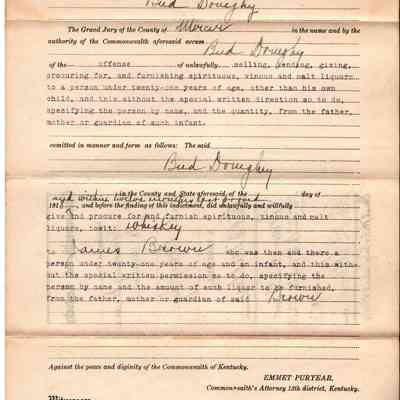 Bud Doneghy
The Grand Jury of the County of Mercer in the name and by the
authority of the Commonwealth aforesaid accuse Bud Doneghy
of the offense of unlawfully selling, vending, giving,
procuring for, and furnishing spirituous, vinous and malt liquors
to a person under twenty-one years of age, other than his own
child, and this without the special written direction so to do,
specifying the person by name, and the quantity, from the father,
mother or guardian of such infant.
comitted in manner and form as follows: The said
Bud Doneghy
in the County and State aforesaid, of the day of
and within twelve months last passed
191 , and before the finding of this indictment, did unlawfully and willfully
give and procure for and furnish spirituous, vinous and malt
liquors, towit: Whiskey
to James Brown who was then and there a
person under twenty-one years of age and an infant, and this with-
out the special written permission so to do, specifying the
person by name and the amount of such liquor to be furnished,
from the father, mother or guardian of said Brown
Against the peace and diginity of the Commonwealth of Kentucky.
EMMET PURYEAR,
Commonwealth's Attorney 13th district, Kentucky.
Witnesses